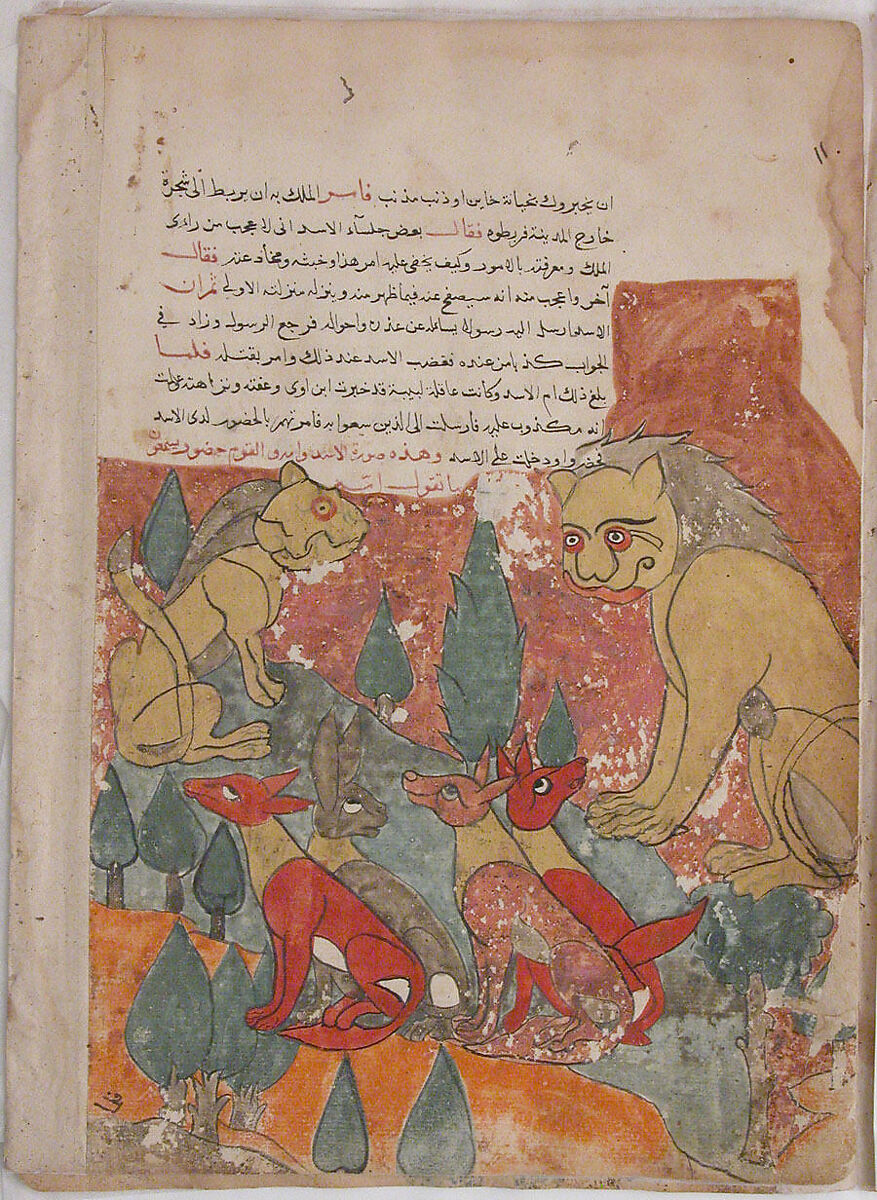 ان يخبروك بخيانة خاين او ذنب مذنب فامر الملك به ان يربط الى شجرة
خارج المدينة فربطوه فقال بعض جلسآء الاسد انى لا عجب من راى
الملك ومعرفته بالامور وكيف يخفى عليه امر هذا وخبثه ومخادعته فقال
آخر واعجب منه انه سيصفح عنه فيما ظهر منه وينزله منزلته الاولى ثم ان
الاسد ارسل اليه رسولا يسايله عن عذره واحواله فرجع الرسول وزاد في
الجواب كذبا من عنده فغضب الاسد عند ذلك وامر بقتله فلما
بلغ ذلك ام الاسد وكانت عاقلة لبيبة قد خبرت ابن اوى وعفته ونزاهته علمت
انه مكذوب عليه فارسلت الى الذين سعوا به فامرتهم بالحضور لدى الاسد
فحضروا ودخلت على الاسد وهذه صورة الاسد وامه و القوم حضور يسمعون
ما تقول
١١